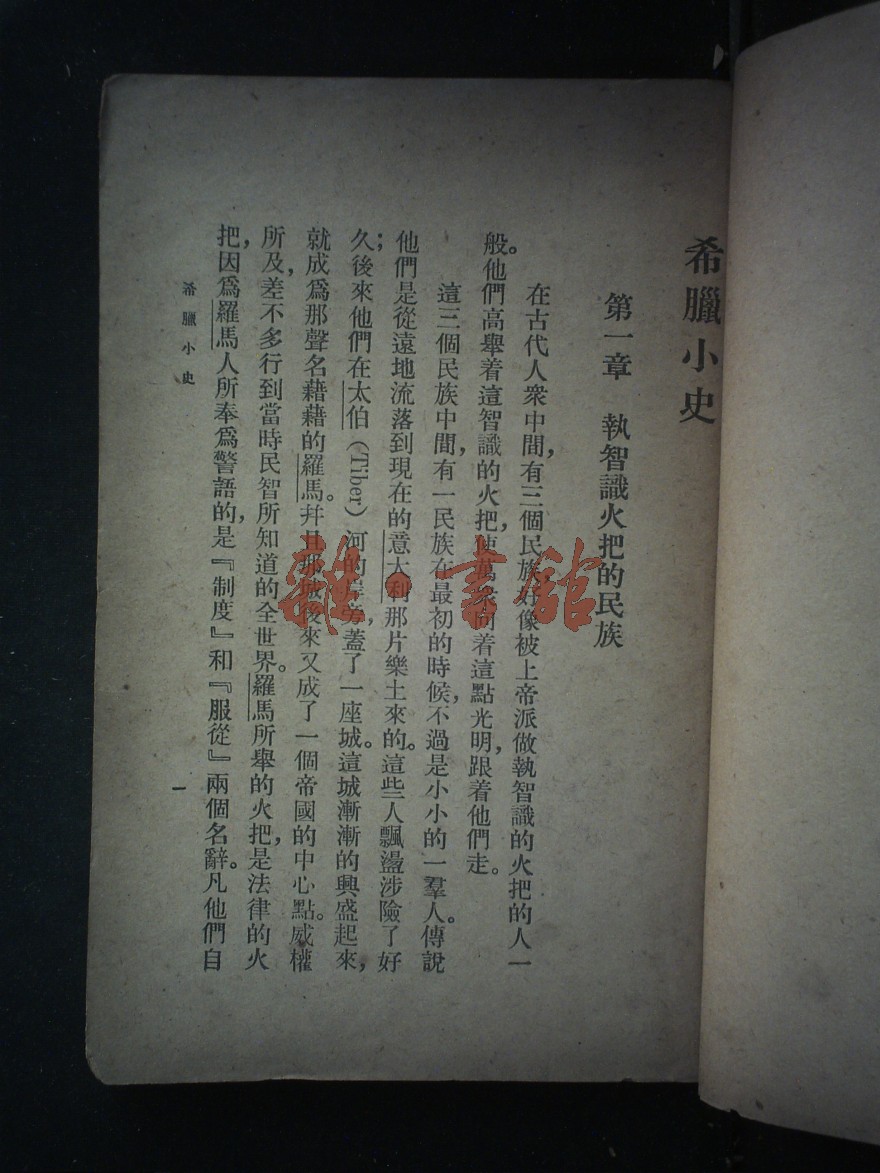 希臘小史
第一章　執智識火把的民族
在古代人衆中間，有三個民族好像被上帝派做執智識的火把的人一
般。他們高舉着這智識的火把，使萬衆向着這點光明，跟着他們走。
這三個民族中間，有一民族在最初的時候，不過是小小的一羣人。傳說
他們是從遠地流落到現在的意大利那片樂土來的。這些人飄盪涉險了好
久；後來他們在太伯（Tiber）河的岸旁，蓋了一座城。這城漸漸的興盛起來，
就成爲那聲名藉藉的羅馬。幷且那城後來又成了一個帝國的中心點。威權
所及，差不多行到當時民智所知道的全世界。羅馬所舉的火把，是法律的火
把，因爲羅馬人所奉爲警語的，是『制度』和『服從』兩個名辭。凡他們自
希臘小史
一
雜·書館